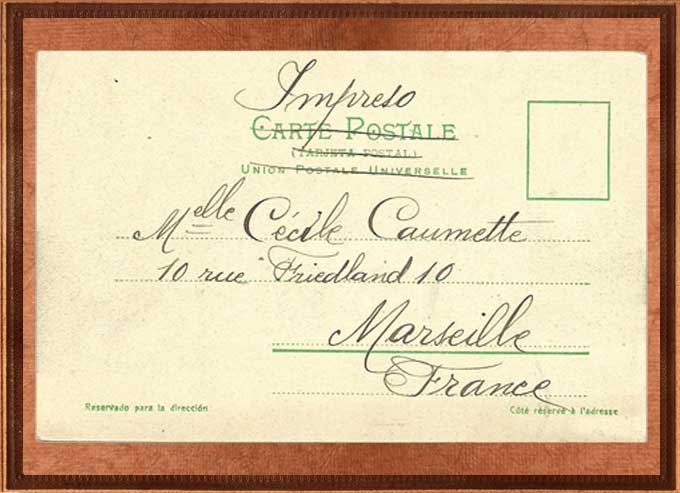 Impreso
CARTE POSTALE
(TARJETA POSTAL)
UNION POSTALE UNIVERSELLE
Melle Cécile Caumette
10 rue Friedland 10
Marseille
France
Reservado para la dirección
Côté réservé à l'adresse